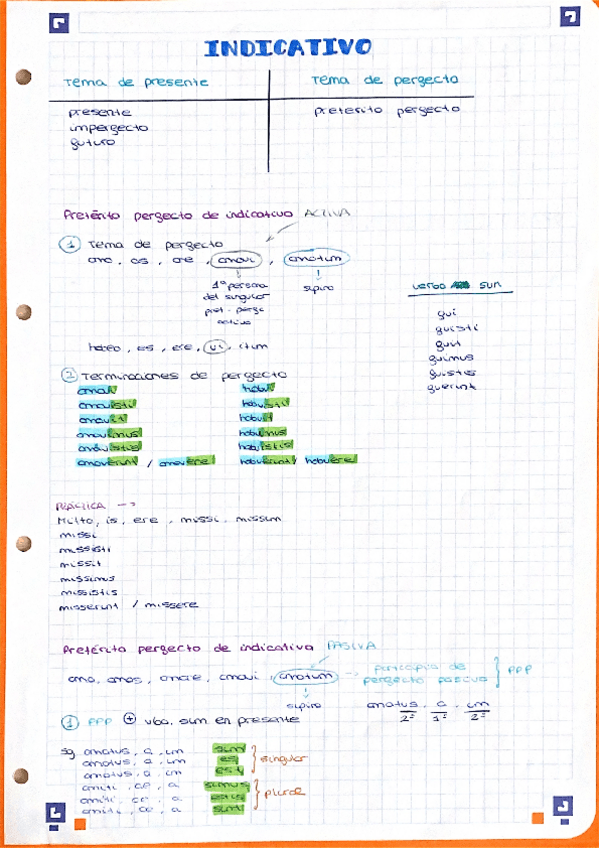 INDICATIVO
Tema de presente
Tema de pergecto
presente
impergecto
guturo
preterito pergecto
Pretérito pergecto de indicativo ACTIVA
1 Tema de pergecto
amo, as, are, amavi, amatum
1ª persona
del singular
pret. perge
activa
supino
verbo sum
gui
guisti
guit
guimus
guistis
guerunt
habeo, es, ere, ui, itum
2 Terminaciones de pergecto
amavi
amavisti
amavit
amavimus
amavistis
amaverunt / amavere
habui
habuisti
habuit
habuimus
habuistis
habuerunt / habuere
PRÁCTICA -->
Mitto, is, ere, missi, missum
missi
missisti
missit
missimus
missistis
misserunt / missere
Pretérito pergecto de indicativa PASIVA
amo, amas, amare, amavi, amatum -> participio de
pergecto pasivo } PPP
supino
amatus, a, um
2ª 1ª 2ª
1 PPP + vbo. sum en presente
sg amatus, a, um sum
amatus, a, um es
amatus, a, um est
} singular
amati, ae, a sumus
amati, ae, a estis
amati, ae, a sunt
} plural